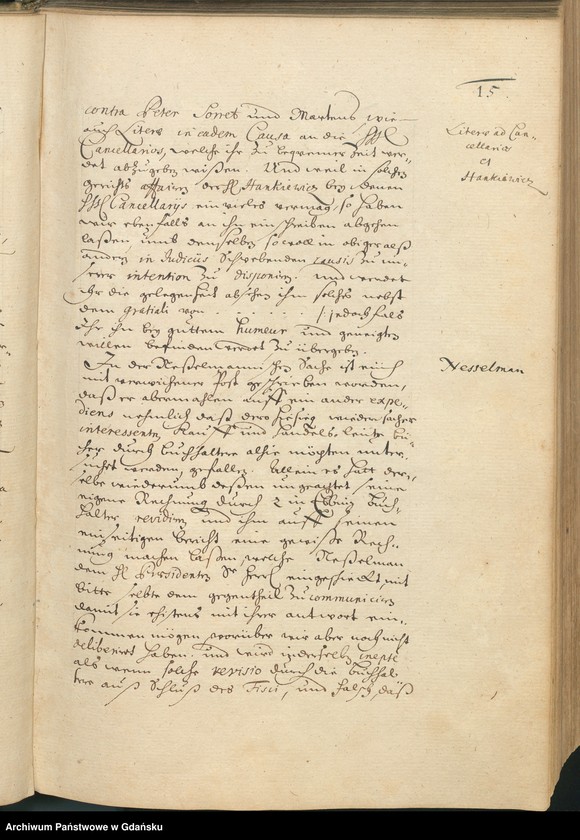 15.
contra Peter Sonet und Martens wie
auch Litera in eadem Causa an die HH
Cancellarios, welche ihr zu bequemer Zeit wer-
det abzugeben wißen. Und weil in solchen
gerichts affairen der H Hankiewicz bey denen
HH Cancellarijs ein vieles vermag, so haben
wir ebenfalls an ihn ein schreiben abgehen
laßen, umb denselben so woll in obiger alß
andern in Judicijs schwebenden causis zu un-
serer intention zu disponiren und werdet
ihr die gelegenheit absehen ihm solches nebst
dem gratiali von . . . . . . jedoch falß
Ihr ihn bey guttem humeur und geneigten
willen befinden werdet zu übergeben.
Litera ad Can-
cellarios
et
Hankiewicz
In der Neßelmannischen Sache ist euch
mit voriger Post geschrieben worden,
daß er abermahlen auff ein ander expe-
diens nehmlich daß dero hiesige wiedersacher
interessenten Kauff und handels-leute bü-
cher durch buchhaltere alhie möchten unter-
suchet werden, gefallen. Allein es hatt der-
selbe wiederumb deßen ungeachtet seine
eigene Rechnung durch 2 in Elbing buch-
halter revidiren und ihm auff seinen
einseitigen bericht eine gewiße Rech-
nung machen laßen, welche Neßelman
dem H Præsidenten Se Herrl eingeschickt, mit
bitte selbte dem gegentheil zu communiciren
damit sie ehistens mit ihrer antwort ein-
kommen mögen, worüber wir aber noch nicht
deliberiret haben. und wird in derselben inepte
als wenn solche revisio durch die buchhal-
tere auß Schluß des Fisci, und falsch, daß
Nesselman
Archiwum Państwowe w Gdańsku